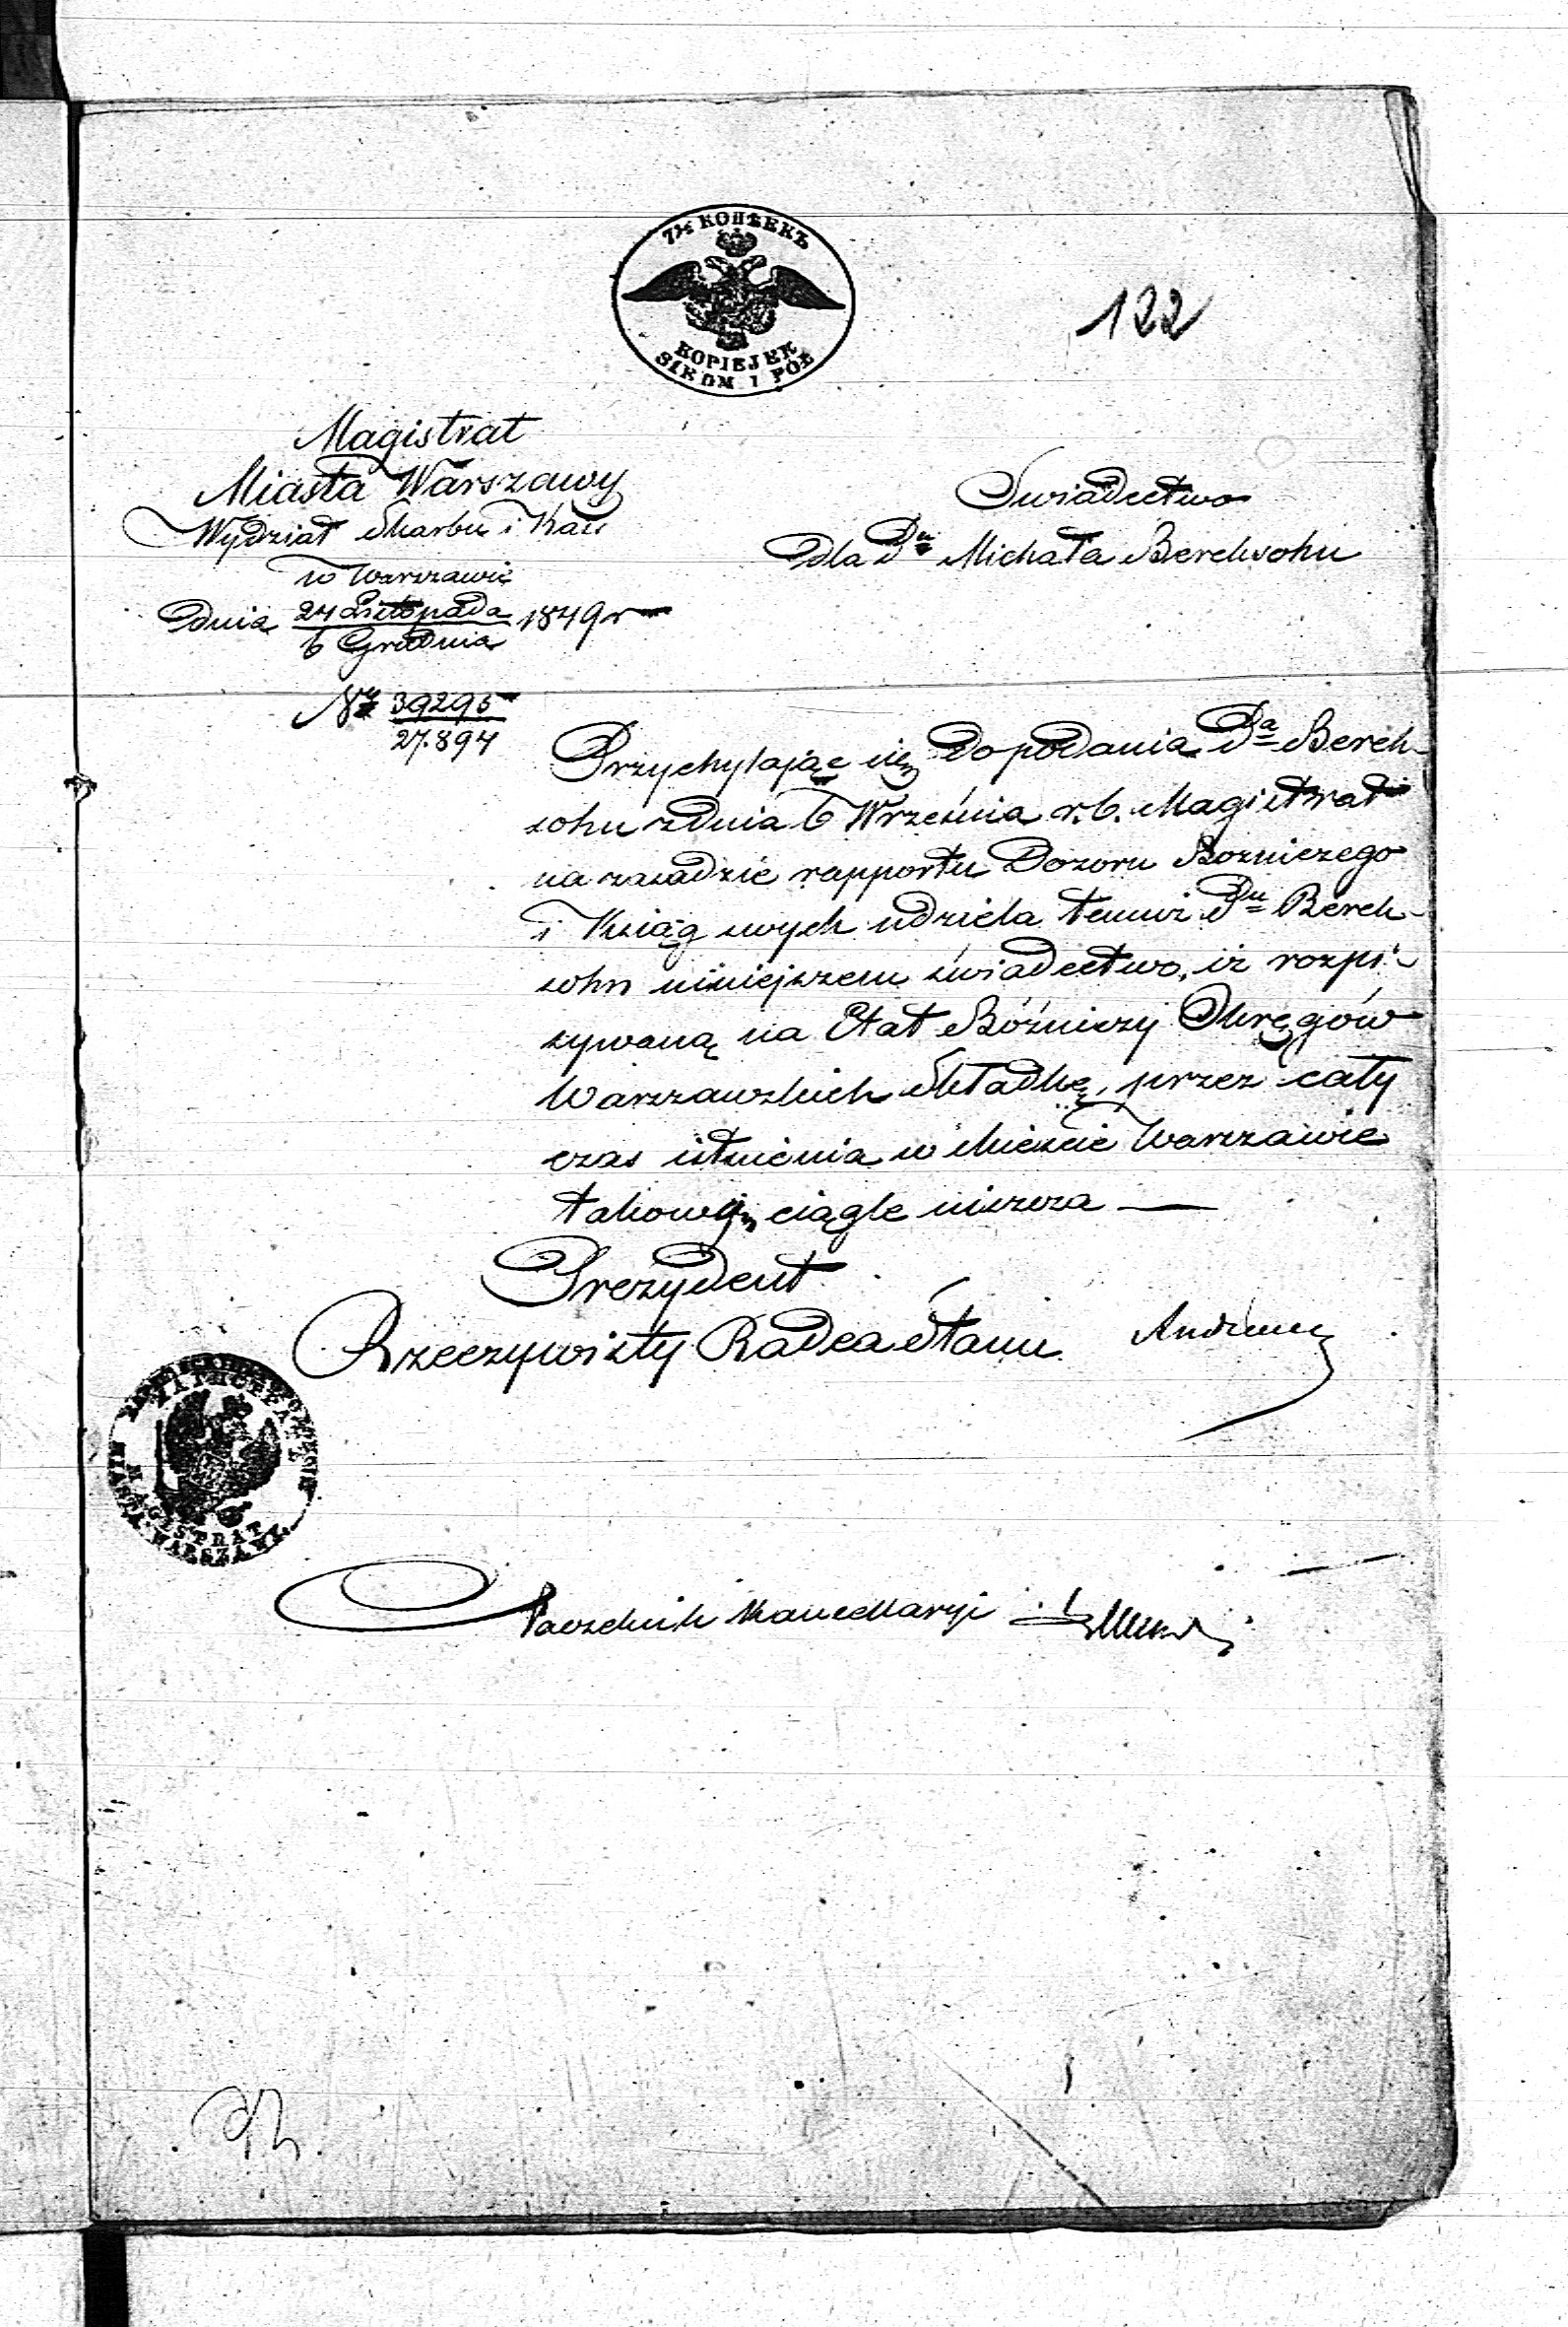 7½ КОПѢЕКЪ
KOPIEJEK
SIEDM I PÓŁ
122
Magistrat
Miasta Warszawy
Wydział Skarbu i Kass
w Warszawie
Dnia 24 Listopada 1849 r
6 Grudnia
Nr 39295
27.894
Swiadectwo
Dla Du Michała Berchsohn
Przychylając się do podania Da Berch-
sohn z dnia 6 Września r. b. Magistrat
na zasadzie rapportu Dozoru Bozniczego
i Ksiąg swych udziela temuż Du Berch-
sohn niniejszem świadectwo, iż rozpi-
sywaną na Etat Bóżniczy Okręgów
Warszawskich Składkę, przez cały
czas istnienia w Mieście Warszawie
takowej ciągle uiszcza —
Prezydent
Rzeczywisty Radca Stanu
MAGISTRAT
MIASTA WARSZAWY
Naczelnik Kancellaryi